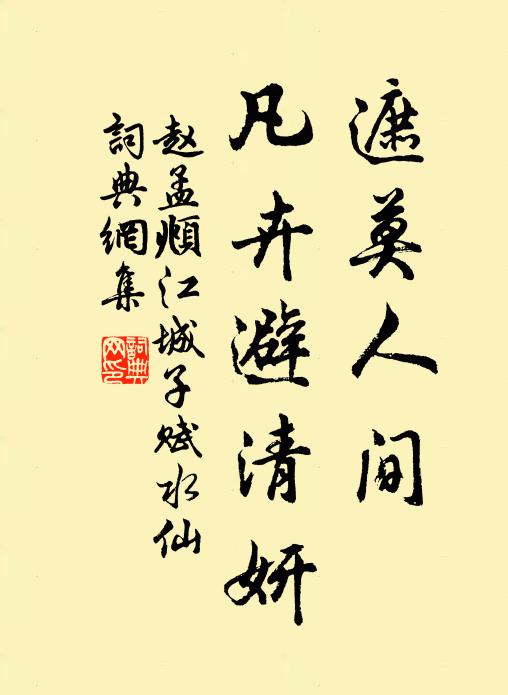 遮莫人间
凡卉避清妍
赵孟頫江城子赋水仙
詞典網集
詞典网印